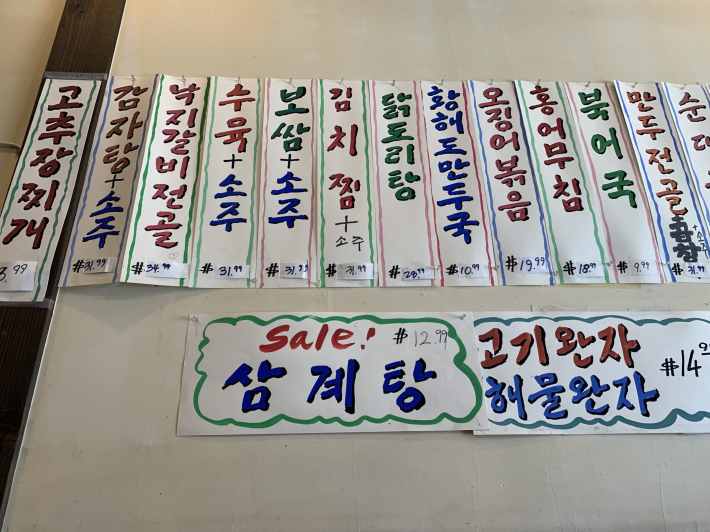 고추장찌개
3.99
감자탕+소주
#31.99
낙지갈비전골
#34.99
수육+소주
#31.99
보쌈+소주
#31.99
김치찜+소주
#31.99
닭도리탕
#28.99
황해도만두국
#10.99
오징어볶음
#19.99
홍어무침
#18.99
북어국
#9.99
만두전골
+소주
#31.99
순대
Sale! #12.99
삼계탕
고기완자
해물완자
#14.9